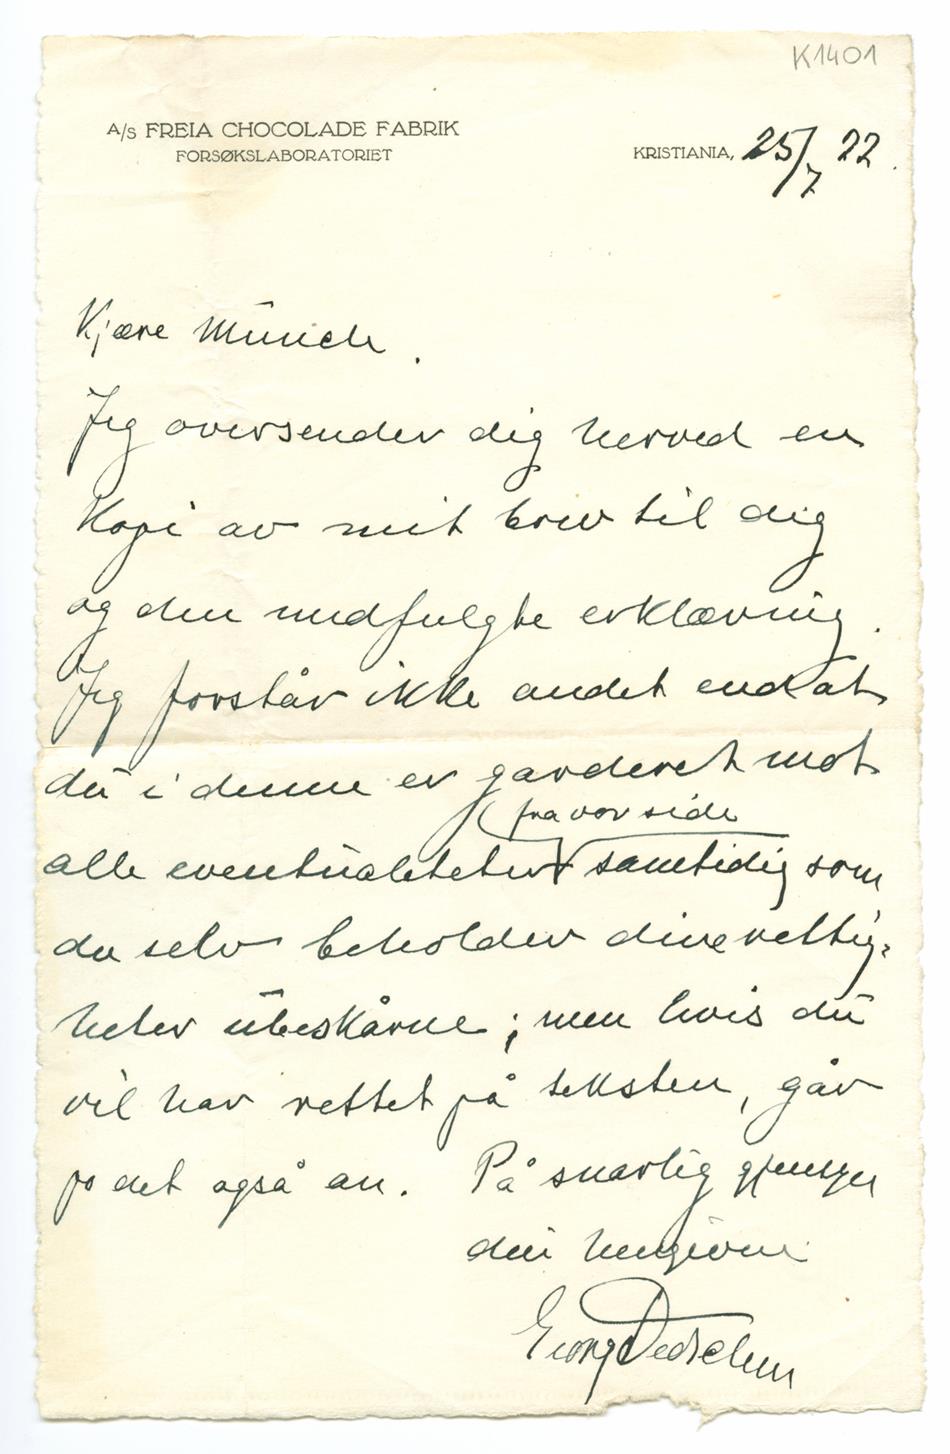 K1401
A/S FREIA CHOCOLADE FABRIK
FORSØKSLABORATORIET
KRISTIANIA, 25/7 22.
Kjære Munch.
Jeg oversender dig herved en
kopi av mit brev til dig
og den medfulgte erklæring.
Jeg forstår ikke andet end at
du i denne er garderet mot
fra vor side
alle eventualiteter samtidig som
du selv beholder dine rettig-
heter ubeskårne; men hvis du
vil har rettet på teksten, går
jo det også an. På snarlig gjensyn
din hengivne
Georg